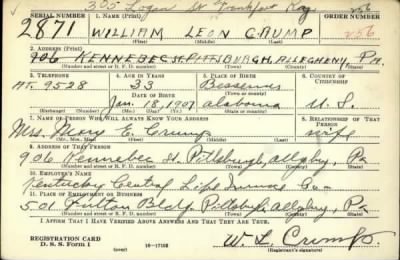 305 Logan St Frankfort Ky. 256
SERIAL NUMBER 1. NAME (Print) ORDER NUMBER
2871 WILLIAM LEON CRUMP 256
(First) (Middle) (Last)
2. ADDRESS (Print)
906 KENNEBEC ST. PITTSBURGH, ALLEGHENY, PA.
(Number and street or R. F. D. number) (Town) (County) (State)
3. TELEPHONE 4. AGE IN YEARS 5. PLACE OF BIRTH 6. COUNTRY OF CITIZENSHIP
AT. 9528 33 Bessemer
DATE OF BIRTH (Town or county)
Jan. 18, 1907 Alabama U. S.
(Mo.) (Day) (Yr.) (State or country)
7. NAME OF PERSON WHO WILL ALWAYS KNOW YOUR ADDRESS 8. RELATIONSHIP OF THAT PERSON
Mrs. Mary E. Crump wife
(Mr., Mrs., Miss) (First) (Middle) (Last)
9. ADDRESS OF THAT PERSON
906 Kennebec St. Pittsburgh, Allghy, Pa
(Number and street or R. F. D. number) (Town) (County) (State)
10. EMPLOYER'S NAME
Kentucky Central Life Co
11. PLACE OF EMPLOYMENT OR BUSINESS
501 Fulton Bldg. Pittsbgh, Allghy, Pa
(Number and street or R. F. D. number) (Town) (County) (State)
I AFFIRM THAT I HAVE VERIFIED ABOVE ANSWERS AND THAT THEY ARE TRUE.
REGISTRATION CARD
D. S. S. Form 1 (over) 16—17105 W. L. Crump
(Registrant's signature)